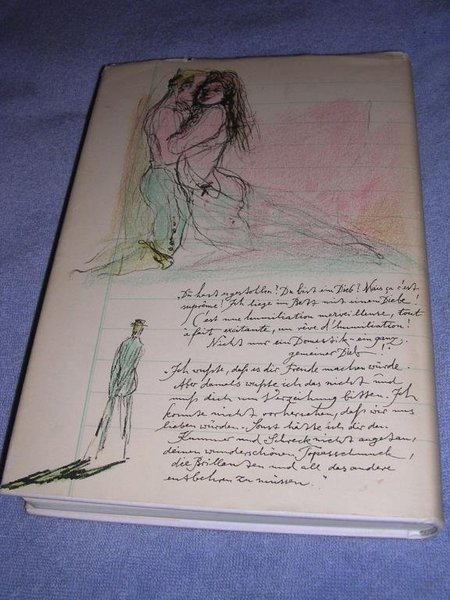 „Du hast es gestohlen? Du bist ein Dieb? Mais ça c'est
suprême! Ich liege im Bett mit einem Diebe!
C'est une humiliation merveilleuse, tout
à fait excitante, un rêve d'humiliation!
Nicht nur ein Domestik – ein ganz
gemeiner Dieb!"
„Ich wußte, daß es dir Freude machen würde.
Aber damals wußte ich das nicht und
muß dich um Verzeihung bitten. Ich
konnte nicht vorhersehen, daß wir uns
lieben würden. Sonst hätte ich dir den
Kummer und Schreck nicht angetan,
deinen wunderschönen Topasschmuck,
die Brillanten und all das andere
entbehren zu müssen."